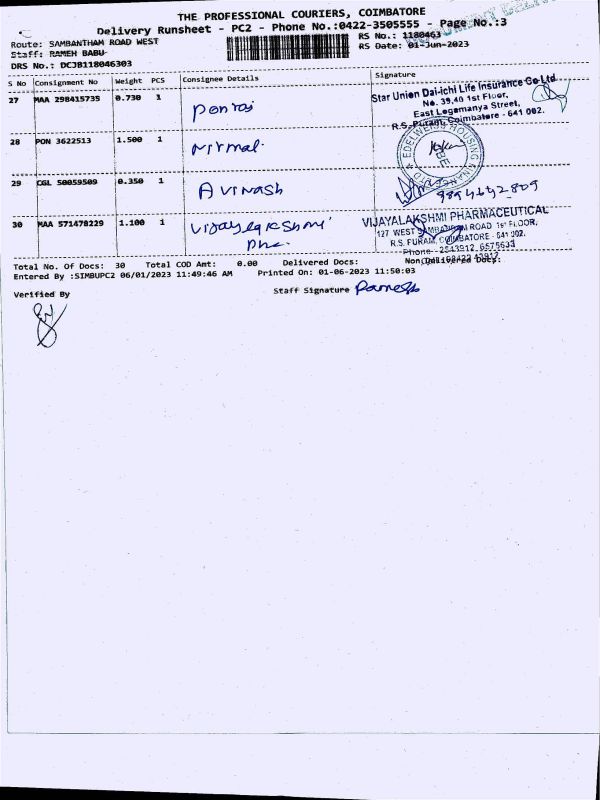 THE PROFESSIONAL COURIERS, COIMBATORE
Delivery Runsheet - PC2 - Phone No.:0422-3505555 - Page No.:3
Route: SAMBANTHAM ROAD WEST
RS No.: 1180463
Staff: RAMEH BABU
RS Date: 01-Jun-2023
DRS No.: DCJB118046303
S No Consignment No Weight PCS Consignee Details Signature
27 MAA 298415739 0.730 1 Ponraj
Star Union Dai-ichi Life Insurance Co Ltd
No. 39,40 1st Floor,
East Logamanya Street,
R.S. Puram, Coimbatore - 641 002.
28 PON 3622513 1.500 1 Nirmal
EDELWEISS HOUSING FINANCE LTD
29 CGL 50059509 0.350 1 Avinash
30 MAA 571478229 1.100 1 Vijayalakshmi
VIJAYALAKSHMI PHARMACEUTICAL
127 WEST SAMBANDAM ROAD 1st FLOOR,
R.S. PURAM, COIMBATORE - 641 002.
Phone - 2543912, 6575633
Total No. Of Docs: 30 Total COD Amt: 0.00 Delivered Docs: Non Delivered Docs:
Entered By :SIMBUPC2 06/01/2023 11:49:46 AM Printed On: 01-06-2023 11:50:03
Verified By
Staff Signature